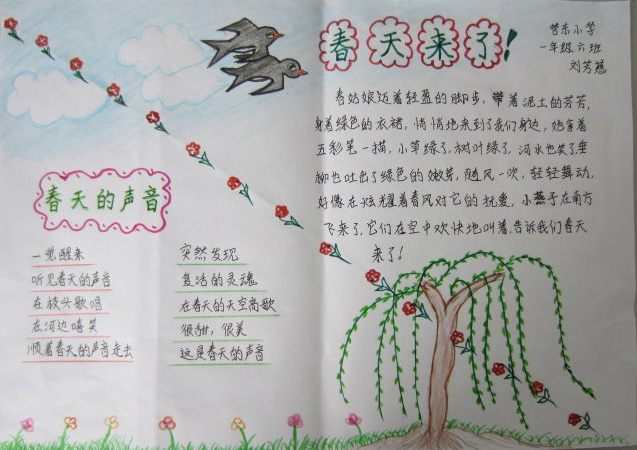 春天来了!
学东小学
一年级六班
刘芳慈
春姑娘迈着轻盈的脚步,带着泥土的芳芳,
身着绿色的衣裙,悄悄地来到了我们身边,她拿着
五彩笔一描,小草绿了,树叶绿了,河水也笑了垂
柳也吐出了绿色的嫩芽,随风一吹,轻轻舞动,
好像在炫耀着春风对它的抚爱,小燕子在南方
飞来了,它们在空中欢快地叫着,告诉我们春天
来了!
春天的声音
一觉醒来
听见春天的声音
在枝头歌唱
在河边嘻笑
顺着春天的声音走去
突然发现
复活的灵魂
在春天的天空高歌
很甜,很美
这是春天的声音